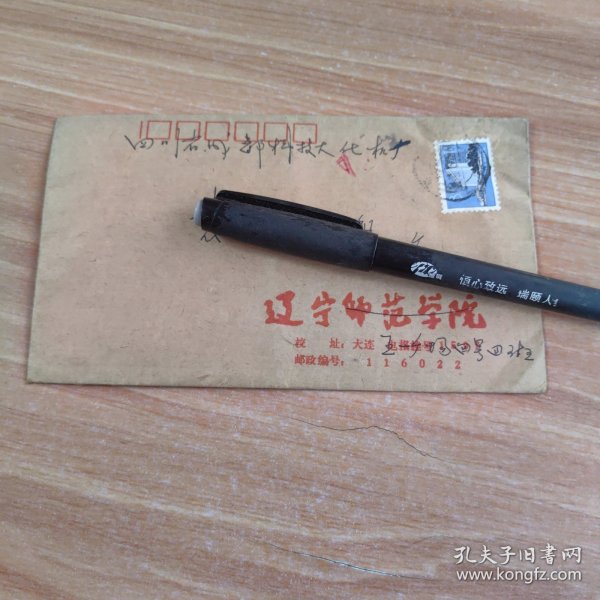 四川省成都科技大化机
辽宁师范学院
校 址：大连
邮政编号：116022
四号四班
恒心致远 瑞颐人
孔夫子旧书网
www.kongfz.com